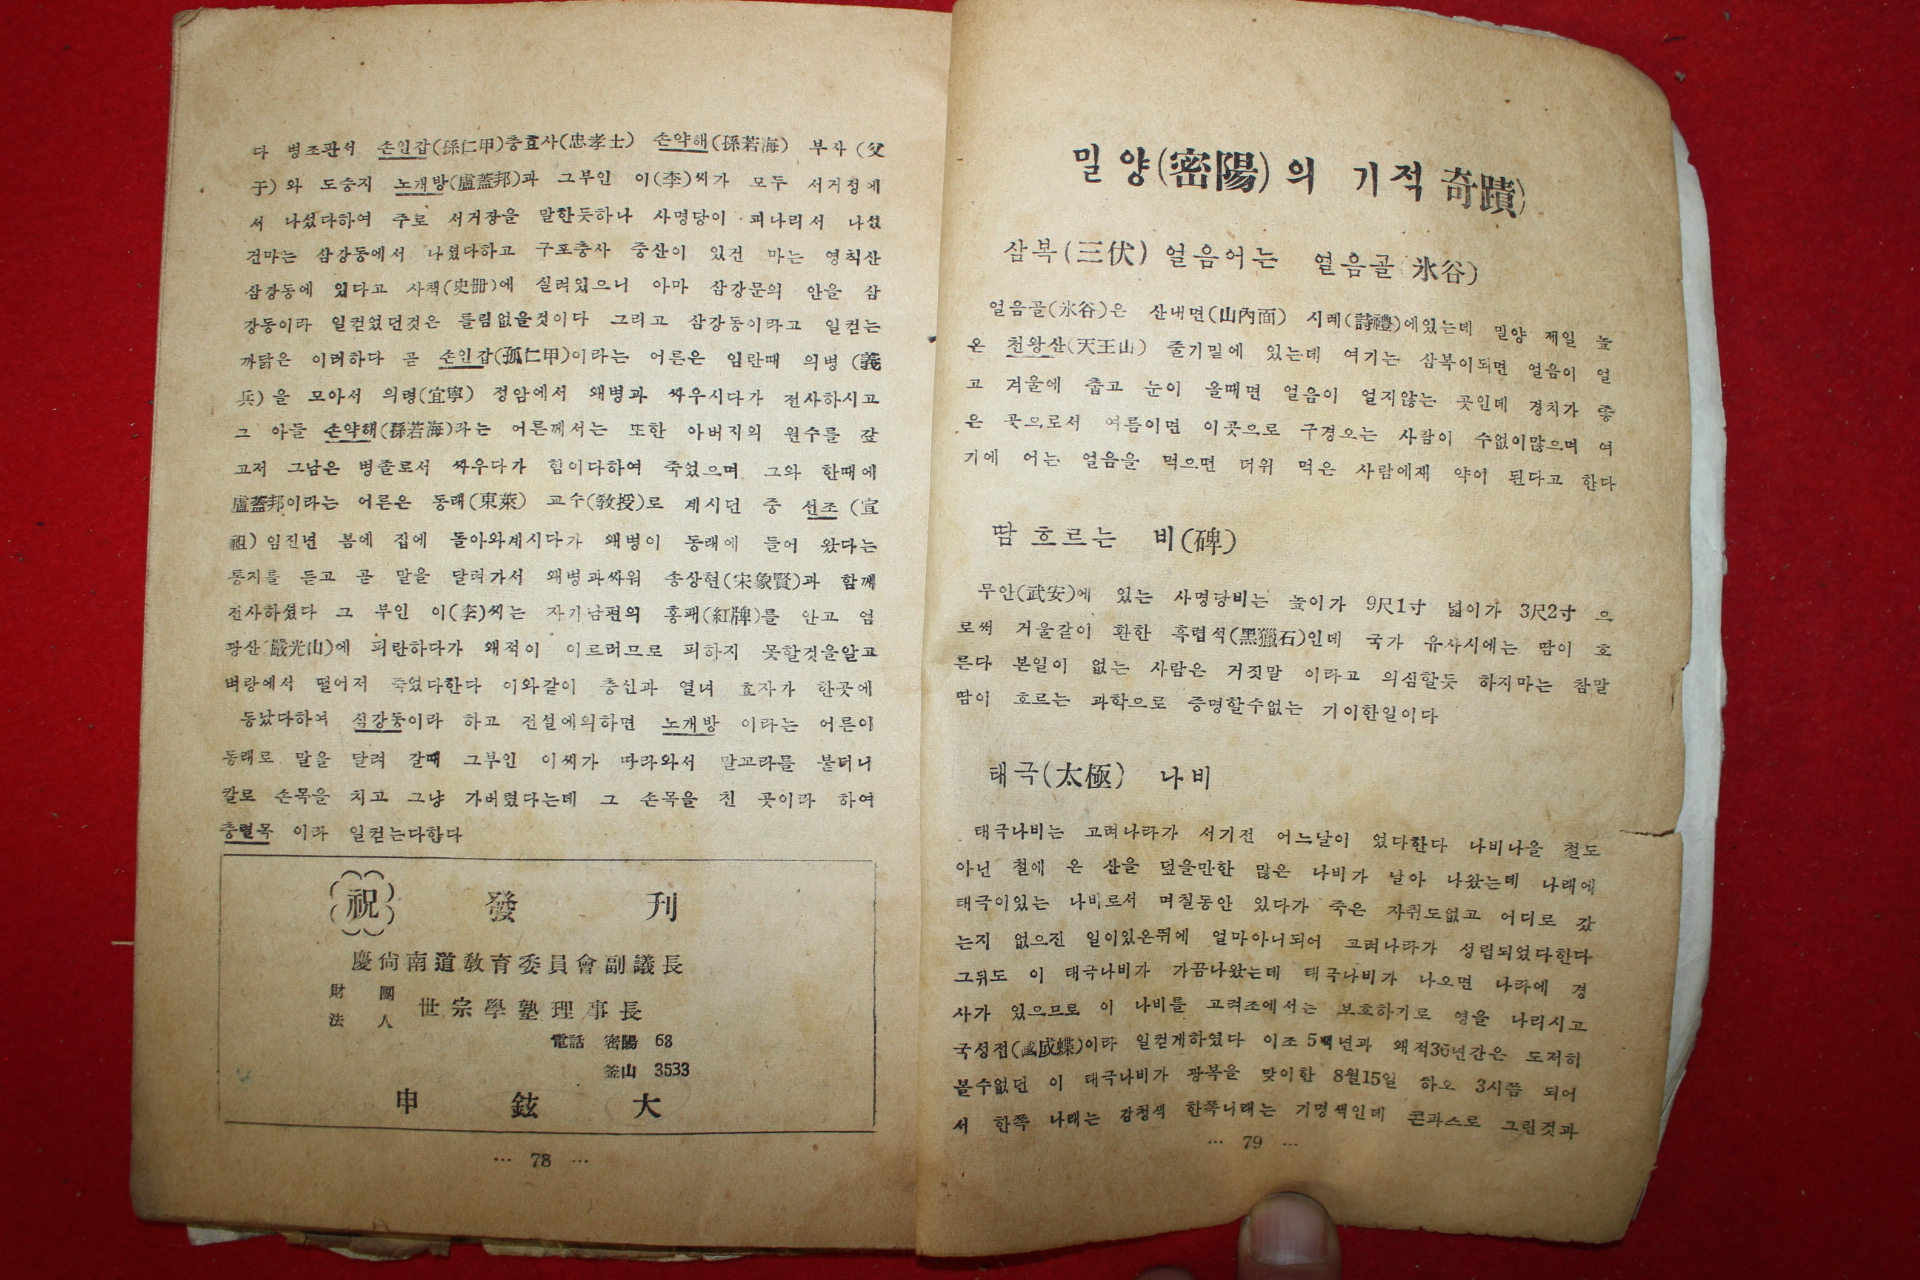 다 병조판서 손인갑(孫仁甲)충효사(忠孝士) 손약해(孫若海) 부자 (父
子)와 도승지 노개방(盧蓋邦)과 그부인 이(李)씨가 모두 서거정에
서 나셨다하여 주로 서거장을 말한듯하나 사명당이 피나리서 나섰
건마는 삼강동에서 나셨다하고 구포충사 중산이 있건 마는 영칙산
삼강동에 있다고 사책(史册)에 실려있으니 아마 삼강문의 안을 삼
강동이라 일컫었던것은 틀림없을것이다 그리고 삼강동이라고 일컫는
까닭은 이러하다 곧 손인갑(孤仁甲)이라는 어른은 임란때 의병 (義
兵)을 모아서 의령(宜寧) 정암에서 왜병과 싸우시다가 전사하시고
그 아들 손약해(孫若海)라는 어른께서는 또한 아버지의 원수를 갚
고저 그남은 병졸로서 싸우다가 힘이다하여 죽었으며 그와 한때에
盧蓋邦이라는 어른은 동래(東萊) 교수(敎授)로 계시던 중 선조 (宣
祖)임진년 봄에 집에 돌아와계시다가 왜병이 동래에 들어 왔다는
통지를 듣고 곧 말을 달려가서 왜병과싸워 송상현(宋象賢)과 함께
전사하셨다 그 부인 이(李)씨는 자기남편의 홍패(紅牌)를 안고 엄
광산(嚴光山)에 피란하다가 왜적이 이르러므로 피하지 못할것을알고
벼랑에서 떨어저 죽었다한다 이와같이 충신과 열녀 효자가 한곳에
동났다하여 삼강동이라 하고 전설에의하면 노개방 이라는 어른이
동래로 말을 달려 갈때 그부인 이씨가 따라와서 말고라를 붙터니
칼로 손목을 치고 그냥 가버렸다는데 그 손목을 친 곳이라 하여
충렬목 이라 일컫는다합다
祝 發 刊
慶尙南道敎育委員會副議長
財團
法人 世宗學塾理事長
電話 密陽 68
釜山 3533
申 鉉 大
… 78 …
밀양(密陽)의 기적 奇蹟)
삼복(三伏) 얼음어는 얼음골(氷谷)
얼음골(氷谷)은 산내면(山內面) 시례(詩禮)에있는데 밀양 제일 높
은 천왕산(天王山) 줄기밑에 있는데 여기는 삼복이되면 얼음이 얼
고 겨울에 춥고 눈이 올때면 얼음이 얼지않는 곳인데 경치가 좋
은 곳으로서 여름이면 이곳으로 구경오는 사람이 수없이많으며 여
기에 어는 얼음을 먹으면 더위 먹은 사람에게 약이 된다고 한다
땀 흐르는 비(碑)
무안(武安)에 있는 사명당비는 높이가 9尺1寸 넓이가 3尺2寸 으
로써 거울같이 환한 흑렵석(黑獵石)인데 국가 유사시에는 땀이 흐
른다 본일이 없는 사람은 거짓말 이라고 의심할듯 하지마는 참말
땀이 흐르는 과학으로 증명할수없는 기이한일이다
태극(太極) 나비
태극나비는 고려나라가 서기전 어느날이 었다한다 나비나올 철도
아닌 철에 온 산을 덮을만한 많은 나비가 날아 나왔는데 나래에
태극이있는 나비로서 며칠동안 있다가 죽은 자취도없고 어디로 갔
는지 없으진 일이있은뒤에 얼마아니되어 고려나라가 성립되었다한다
그뒤도 이 태극나비가 가끔나왔는데 태극나비가 나오면 나라에 경
사가 있으므로 이 나비를 고려조에서는 보호하기로 영을 나리시고
국성접(國成蝶)이라 일컫게하였다 이조 5백년과 왜적36년간은 도저히
볼수없던 이 태극나비가 광복을 맞이한 8월15일 하오 3시쯤 되어
서 한쪽 나래는 감청색 한쪽니래는 기명색인데 콘파스로 그린것과
… 79 …